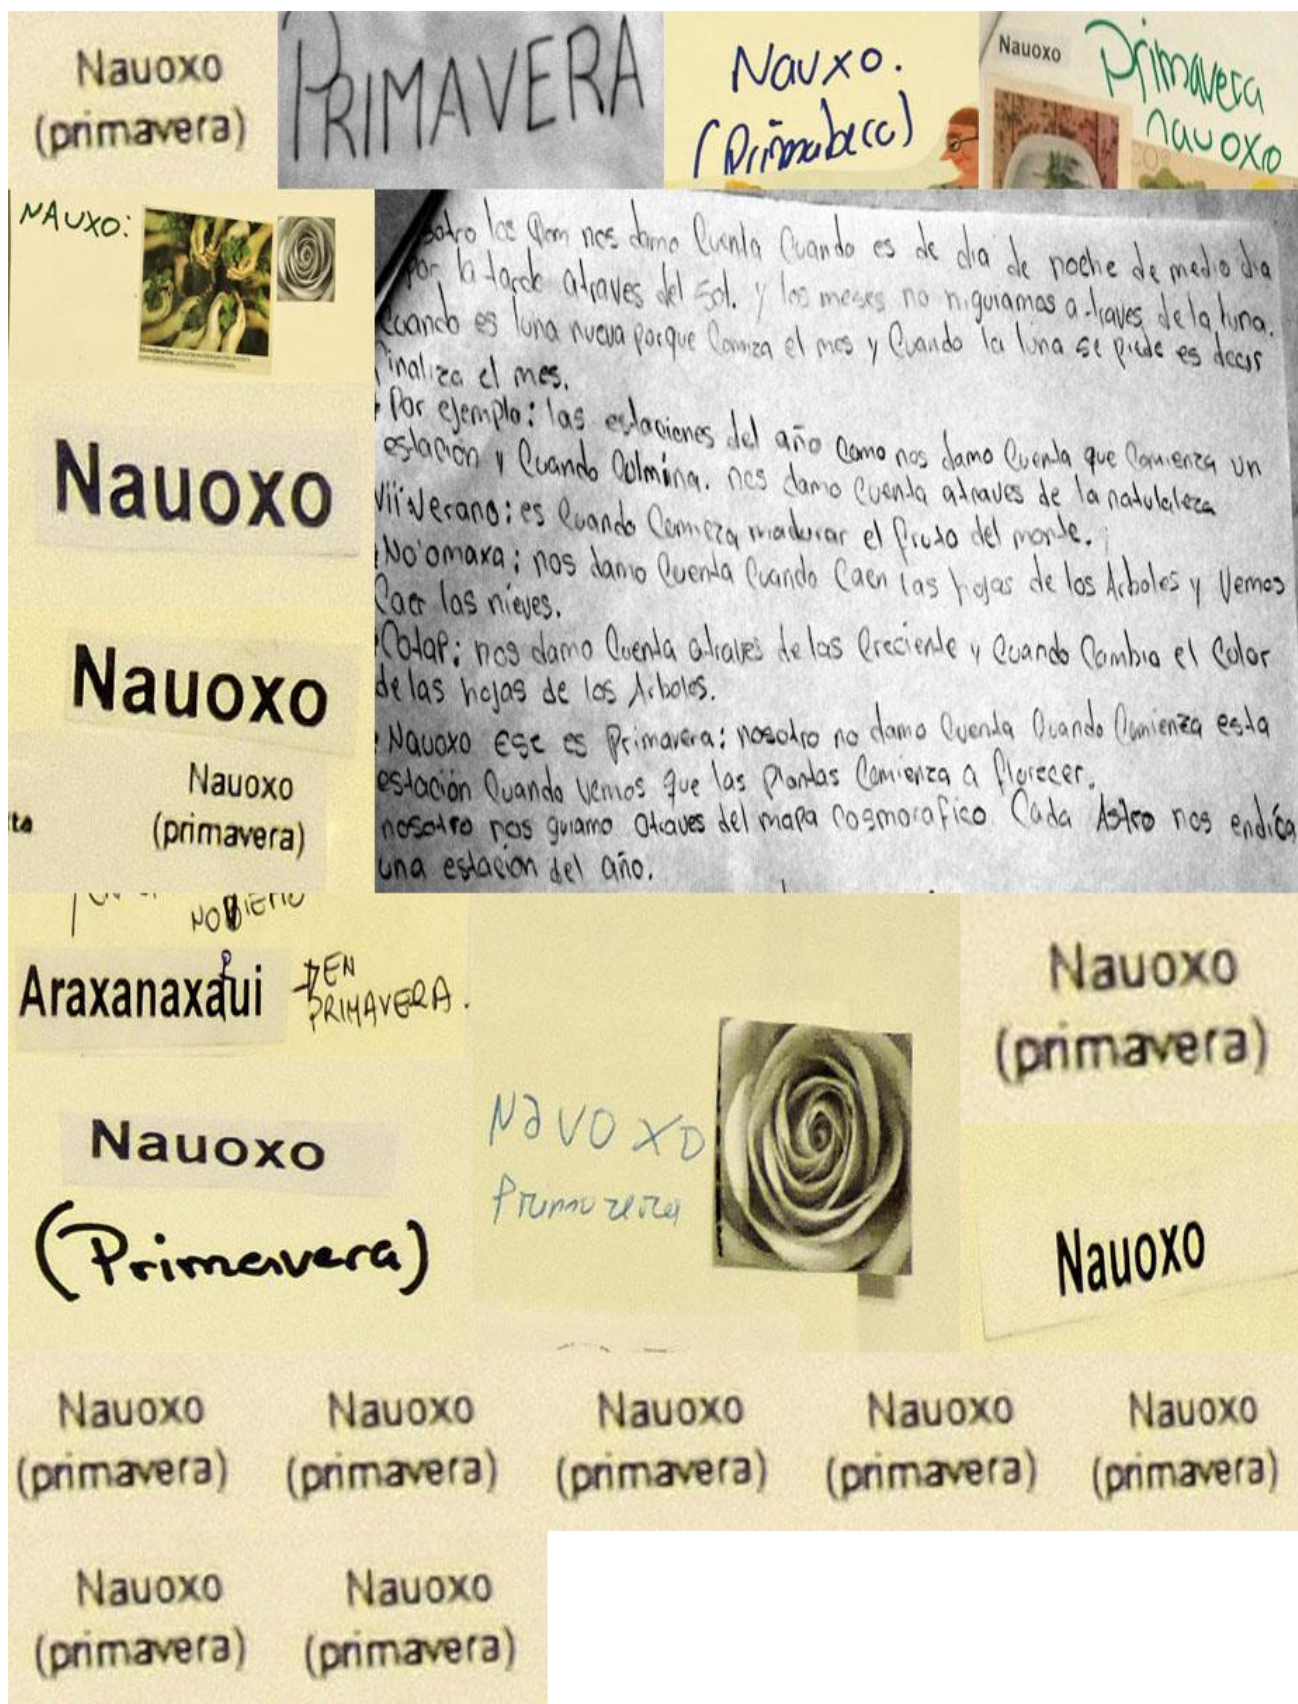 Nauoxo
(primavera)
PRIMAVERA
Nauxo.
(
Nauoxo
Primavera
nauoxo
NAUXO:
los Qom nos damo Cuenta Cuando es de dia de noche de medio dia
Por la tarde atraves del sol. y los meses no niguiamos a traves de la luna.
Cuando es luna nueva porque Comiza el mes y Cuando la luna se piede es decir
inaliza el mes.
Por ejemplo: las estaciones del año Como nos damo Cuenta que Comienza un
estación y Cuando Colmina. nos damo Cuenta atraves de la
Verano: es Cuando Comieza madurar el fruto del monte.
No'omaxa: nos damo Cuenta Cuando Caen las hojas de los Arboles y Vemos
Caer las nieves.
Cotap: nos damo Cuenta atraves de las Creciente y Cuando Cambia el Color
de las hojas de los Arboles.
Nauoxo Ese es Primavera: nosotro no damo Cuenta Cuando Comienza esta
estación Cuando vemos que las Plantas Comienza a florecer.
nosotro nos guiamo atraves del mapa cosmorafico. Cada Astro nos endica
una estacion del año.
Nauoxo
Nauoxo
Nauoxo
ta (primavera)
Araxanaxaui
EN
PRIMAVERA.
Nauoxo
(Primavera)
Nauoxo
Primavera
Nauoxo
(primavera)
Nauoxo
Nauoxo Nauoxo Nauoxo Nauoxo Nauoxo
(primavera) (primavera) (primavera) (primavera) (primavera)
Nauoxo Nauoxo
(primavera) (primavera)